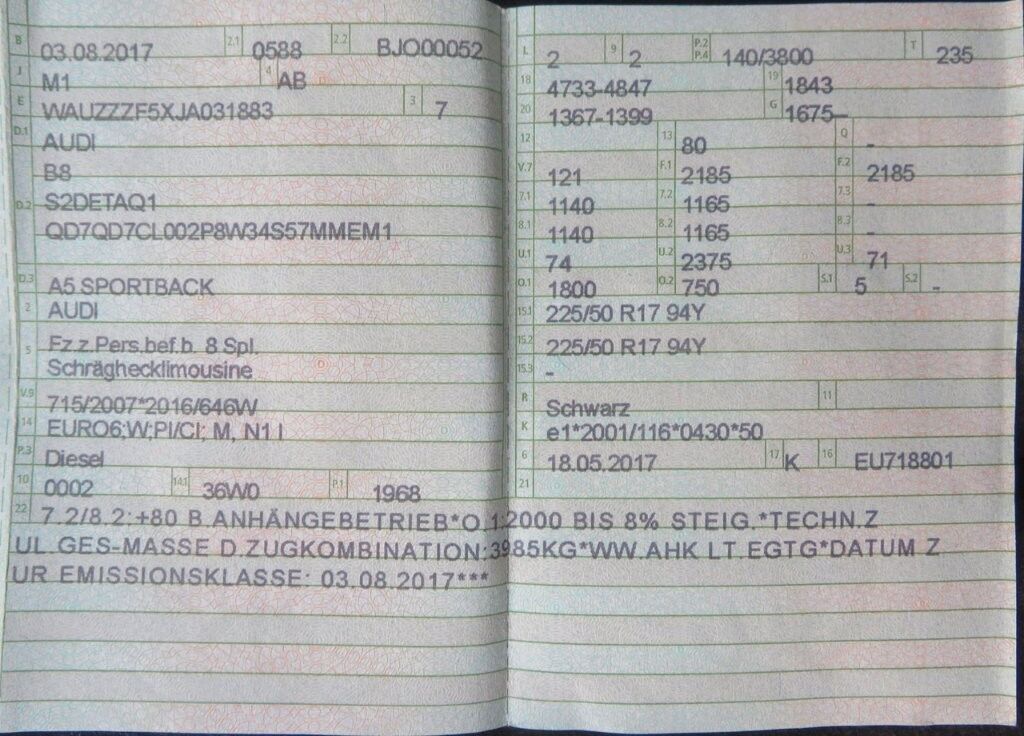 B 03.08.2017 2.1 0588 2.2 BJO00052
J M1 4 AB
E WAUZZZF5XJA031883 3 7
D.1 AUDI
B8
D.2 S2DETAQ1
QD7QD7CL002P8W34S57MMEM1
D.3 A5 SPORTBACK
2 AUDI
5 Fz.z.Pers.bef.b. 8 Spl.
Schräghecklimousine
V.9 715/2007*2016/646W
14 EURO6;W;PI/CI; M, N1 I
P.3 Diesel
10 0002 14.1 36W0 P.1 1968
L 2 9 2 P.2 P.4 140/3800 T 235
18 4733-4847 19 1843
20 1367-1399 G 1675-
12 13 80 Q -
V.7 121 F.1 2185 F.2 2185
7.1 1140 7.2 1165 7.3 -
8.1 1140 8.2 1165 8.3 -
U.1 74 U.2 2375 U.3 71
O.1 1800 O.2 750 S.1 5 S.2 -
15.1 225/50 R17 94Y
15.2 225/50 R17 94Y
15.3 -
R Schwarz 11
K e1*2001/116*0430*50
6 18.05.2017 17 K 16 EU718801
21
22 7.2/8.2:+80 B.ANHÄNGEBETRIEB*O.1:2000 BIS 8% STEIG.*TECHN.Z
UL.GES-MASSE D.ZUGKOMBINATION:3985KG*WW.AHK LT.EGTG*DATUM Z
UR EMISSIONSKLASSE: 03.08.2017***